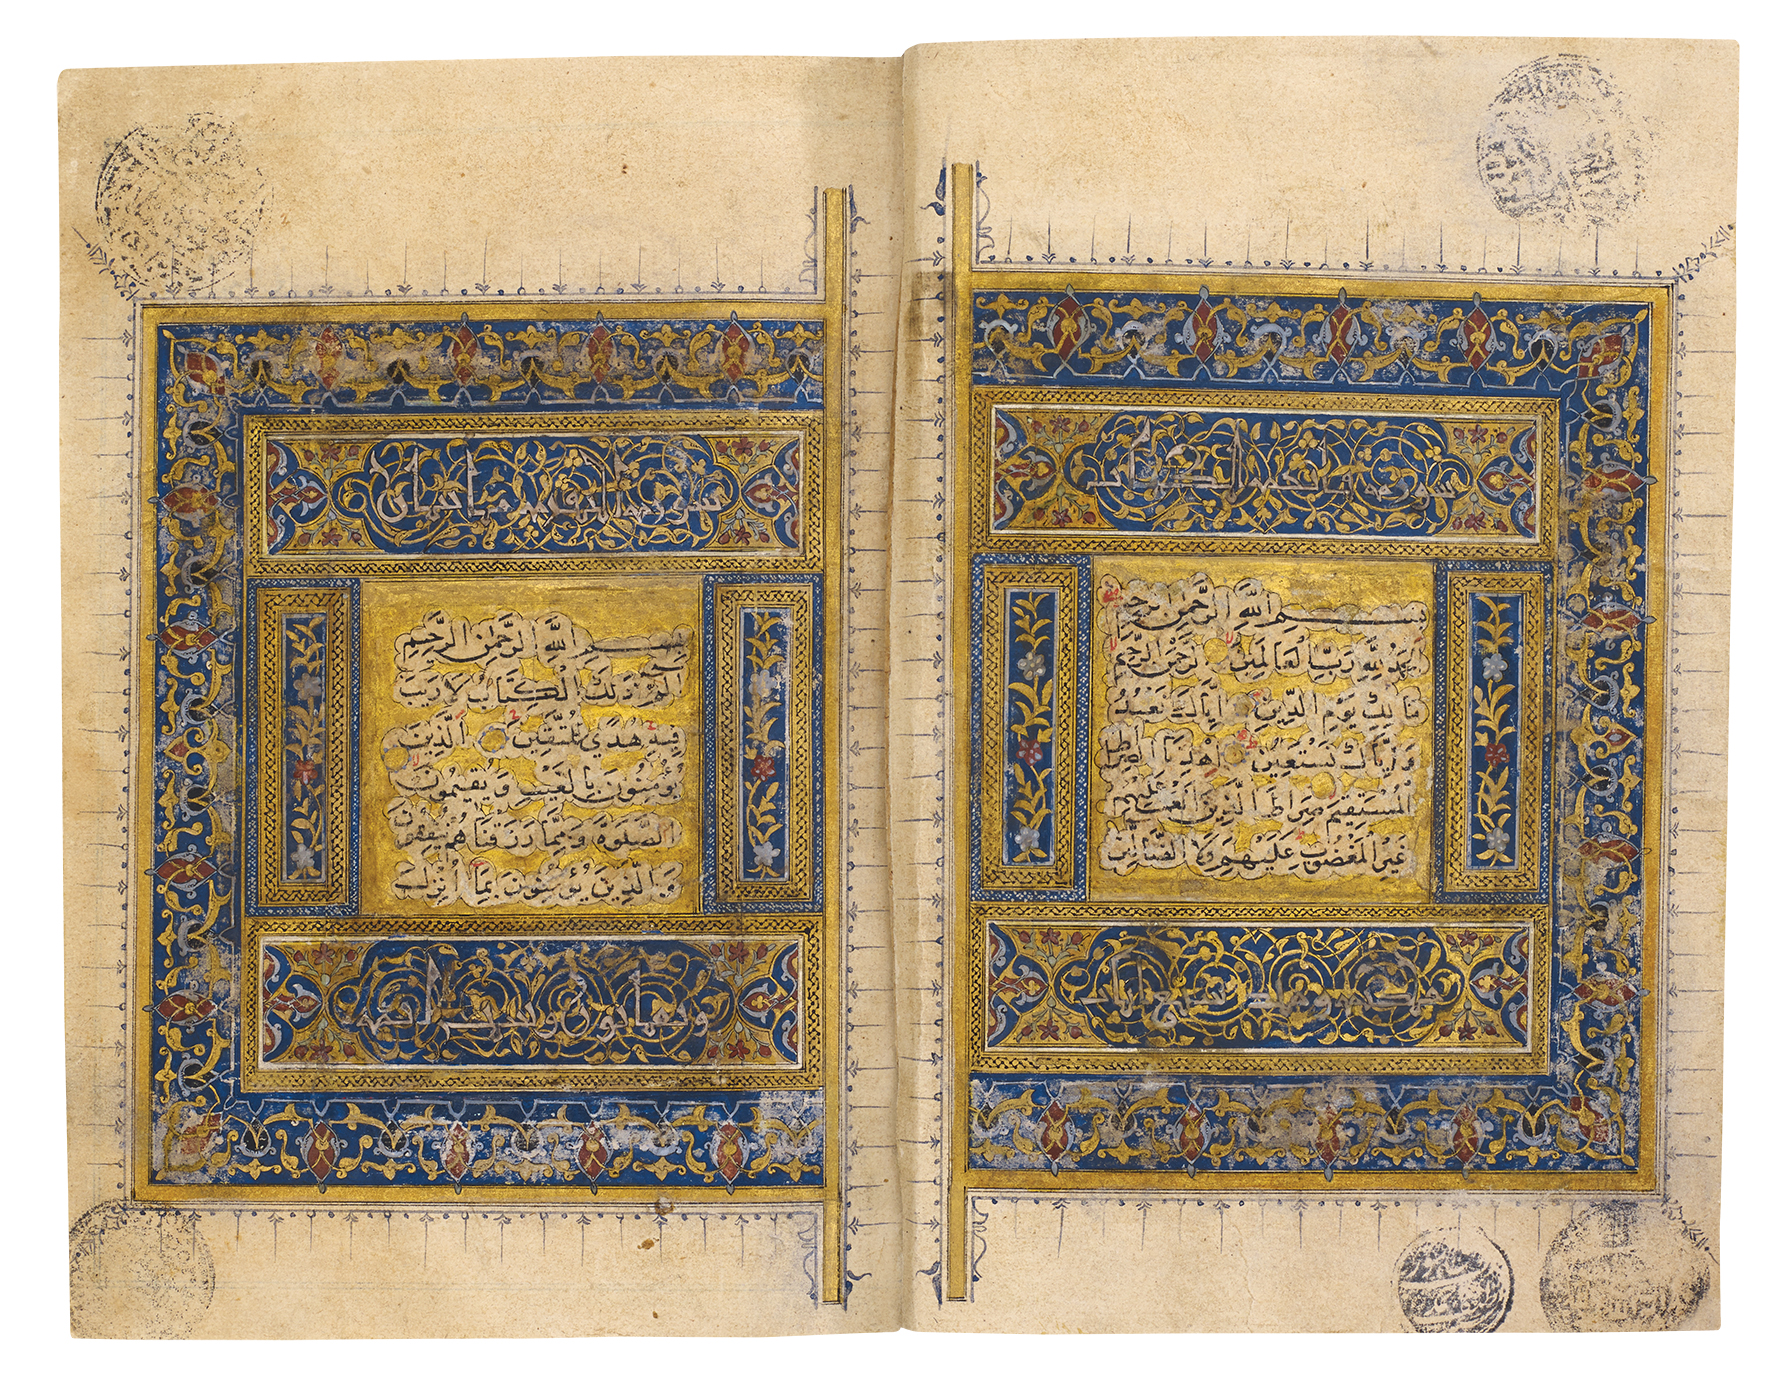 سورة فاتحة الكتاب
بِسْمِ اللهِ الرَّحْمٰنِ الرَّحِيمِ
اَلْحَمْدُ لِلّٰهِ رَبِّ الْعَالَمِينَ الرَّحْمٰنِ الرَّحِيمِ
مَالِكِ يَوْمِ الدِّينِ اِيَّاكَ نَعْبُدُ
وَاِيَّاكَ نَسْتَعِينُ اِهْدِنَا الصِّرَاطَ
الْمُسْتَقِيمَ صِرَاطَ الَّذِينَ اَنْعَمْتَ عَلَيْهِمْ
غَيْرِ الْمَغْضُوبِ عَلَيْهِمْ وَلَا الضَّالِّينَ
مكية وهي سبع ايات
سورة البقرة مايتان
بِسْمِ اللهِ الرَّحْمٰنِ الرَّحِيمِ
الٓمٓ ذٰلِكَ الْكِتَابُ لَا رَيْبَ
فِيهِ هُدًى لِلْمُتَّقِينَ اَلَّذِينَ
يُؤْمِنُونَ بِالْغَيْبِ وَيُقِيمُونَ
الصَّلٰوةَ وَمِمَّا رَزَقْنَاهُمْ يُنْفِقُونَ
وَالَّذِينَ يُؤْمِنُونَ بِمَا اُنْزِلَ
وثمانون